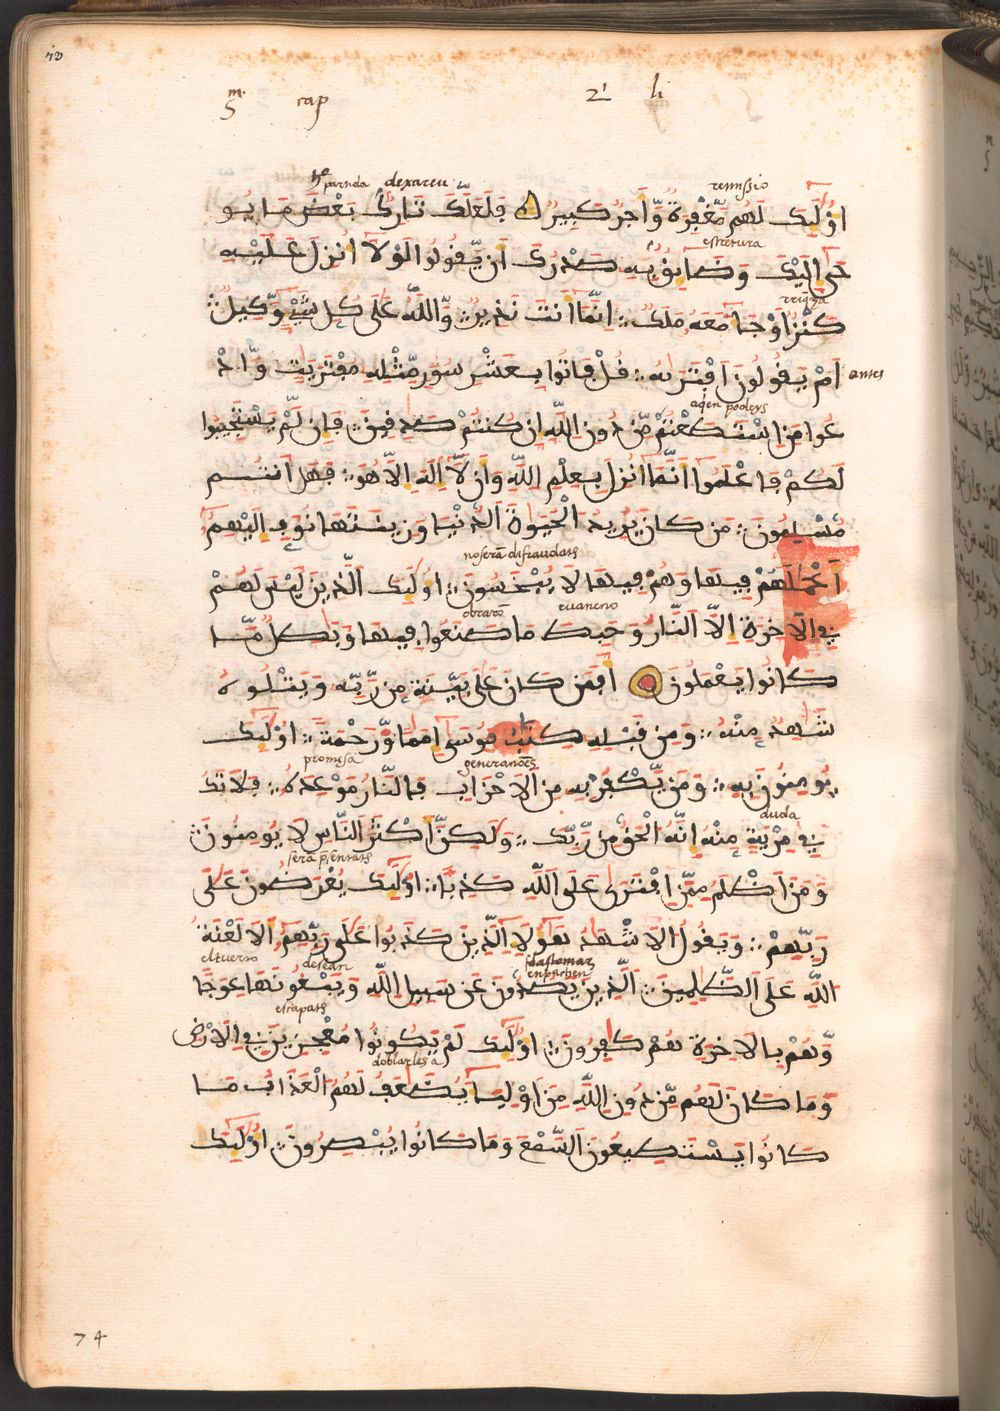 m. 5 cap 2 li
partida dexareu remissio
اوليك لهم مغفرة واجر كبير فلعلك تارك بعض ما يو
estretura
حى اليك وضايق به صدرك ان يقولوا لولا انزل عليه
كنز او جا معه ملك انما انت نذير والله على كل شي وكيل
ام يقولون افتريه قل فاتوا بعشر سور مثله مفتريت واد antes
aqen podeys
عوا من استطعتم من دون الله ان كنتم صدقين فان لم يستجيبوا
لكم فاعلموا انما انزل بعلم الله وان لا اله الا هو فهل انتم
مسلمون من كان يريد الحيوة الدنيا وزينتها نوف اليهم
no será difraudats
اعملهم فيها وهم فيها لا يبخسون اوليك الذين ليس لهم
obraró
في الاخرة الا النار وحبط ما صنعوا فيها وبطل ما
كانوا يعملون افمن كان على بينة من ربه ويتلوه
شهد منه ومن قبله كتب موسى اماما ورحمة اوليك
promisa
يومنون به ومن يكفر به من الاحزاب فالنار موعده فلا تك
duda
في مرية منه انه الحق من ربك ولكن اكثر الناس لا يومنون
ومن اظلم ممن افترى على الله كذبا اوليك يعرضون على
ربهم ويقول الاشهد هولا الذين كذبوا على ربهم الا لعنة
el tuerto desean
الله على الظلمين الذين يصدون عن سبيل الله ويبغونها عوجا
escapats
وهم بالاخرة هم كفرون اوليك لم يكونوا معجزين في الارض
doblarles a
وما كان لهم من دون الله من اوليا يضعف لهم العذاب ما
كانوا يستطيعون السمع وما كانوا يبصرون اوليك
74